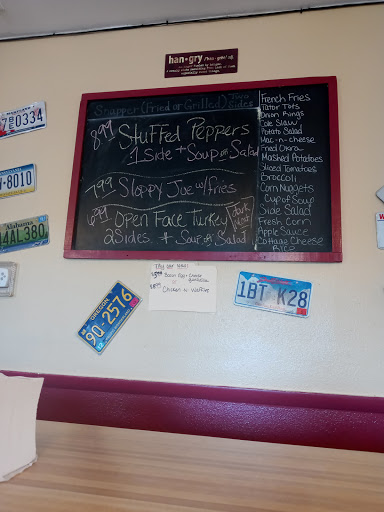 han·gry
Snapper (Fried or Grilled) Two Sides
8.99 Stuffed Peppers
1 Side + Soup or Salad
7.99 Sloppy Joe w/Fries
6.99 Open Face Turkey
dark meat
2 Sides + Soup or Salad
French Fries
Tator Tots
Onion Rings
Cole Slaw
Potato Salad
Mac-n-cheese
Fried Okra
Mashed Potatoes
Sliced Tomatoes
Broccoli
Corn Nuggets
Cup of Soup
Side Salad
Fresh Corn
Apple Sauce
Cottage Cheese
Rice
Bacon Egg + Cheese
Chicken n Waffle
MARYLAND
0334
8010
Alabama
4AL380
OREGON
9Q 2576
1BT K28